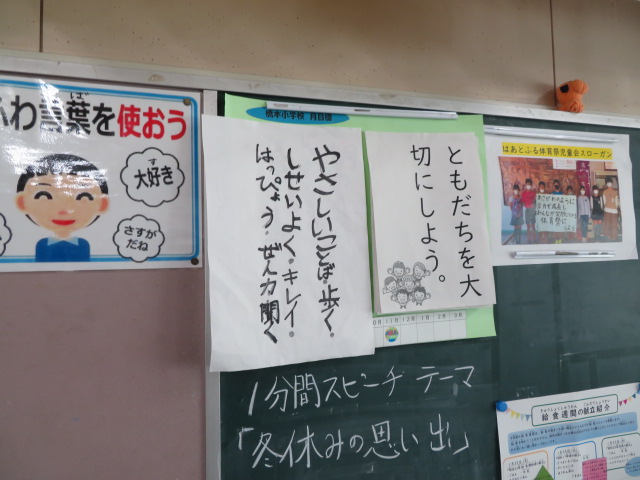 ふわ言葉を使おう
ば
す
大好き
さすが
だね
橋本小学校 月目標
やさしいことば・歩く・
しせいよく・キレイ・
はっぴょう・ぜん力聞く
ともだちを大
切にしよう。
10月 11月 12月 1月 2月 3月
はあとふる体育祭児童会スローガン
1分間スピーチ テーマ
「冬休みの思い出」
給食週間の献立紹介